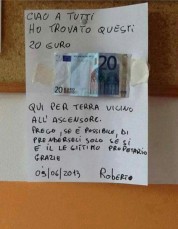 CIAO A TUTTI
HO TROVATO QUESTI
20 EURO
20 EURO
20
QUI PER TERRA VICINO
ALL'ASCENSORE.
PREGO, SE È POSSIBILE, DI
PRENDERSELI SOLO SE SI
È IL LEGITTIMO PROPRIETARIO
GRAZIE
09/06/2013 ROBERTO